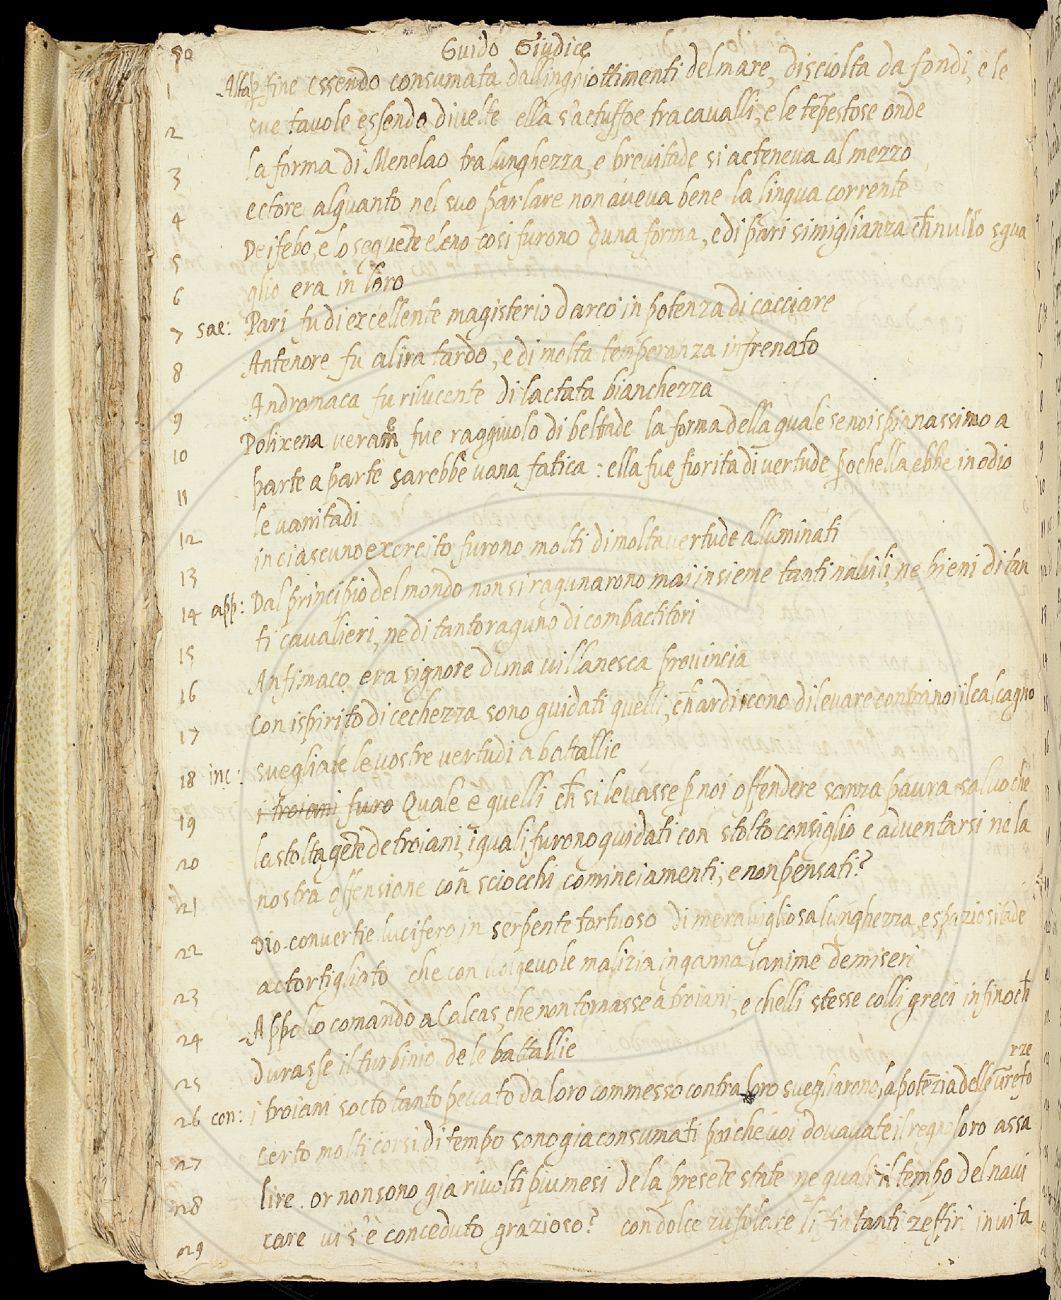 50 Guido Giudice
1 Alla p fine essendo consumata dall inghiottimenti del mare, disciolta da fondi, e le
2 sue tavole essendo divelte ella s'actuffoe tra cavalli, e le tēpestose onde
3 la forma di Menelao tra lunghezza, e brevitade si acteneva al mezzo
4 ectore alquanto nel suo parlare non aveva bene la lingua corrente
5 Deifebo, e lo seguēte eleno cosi furono d una forma, e di pari simiglianza ch̄ nullo sgua
6 glio era in loro
7 sae: Pari fu di excellente magisterio d arco in potenza di cacciare
8 Antenore fu a lira tardo, e di molta temperanza infrenato
9 Andromaca fu rilucente di lactata bianchezza
10 Polixena veram fue raggiuolo di beltade la forma della quale se noi spianassimo a
11 parte a parte sarebbe vana fatica: ella fue fiorita di vertude pochella ebbe in odio
12 le vanitadi
13 in ciascuno exercito furono molti di molta vertude alluminati
14 app: Dal principio del mondo non si ragunarono mai insieme tanti navili, ne pieni di tan
15 ti cavalieri, ne di tanto raguno di combactitori
16 Anfimaco era signore di una villanesca provincia
17 Con ispirito di cechezza sono guidati quelli, ch̄ ardiscono di levare contra noi il calcagno
18 inc: svegliate le vostre vertudi a batallie
19 i troiani furo Quale è quelli ch̄ si levasse p noi offendere sanza paura salvo che
20 la stolta gēte de troiani, i quali furono guidati con stolto consiglio e adventarsi ne la
21 nostra offensione con sciocchi cominciamenti, e non pensati?
22 Dio convertie lucifero in serpente tortuoso di meravigliosa lunghezza e spaziositade
23 actortigliato che con volgevole malizia inganna l anime de miseri
24 Appollo comandò a Calcas, che non tornasse a priani, e chelli stesse colli greci infinoch̄
25 durasse il turbinio de le battallie
26 con: i troiani socto tanto peccato da loro commesso contra loro svegliarono la potēzia delle
27 certo molti corsi di tempo sono gia consumati poiche voi dovavate il regno loro assa
28 lire. or non sono gia rivolti piu mesi de la presēte state ne quali il tempo del navi
29 care vi s'è conceduto grazioso? con dolce zufolare li fiatanti zeffiri invita